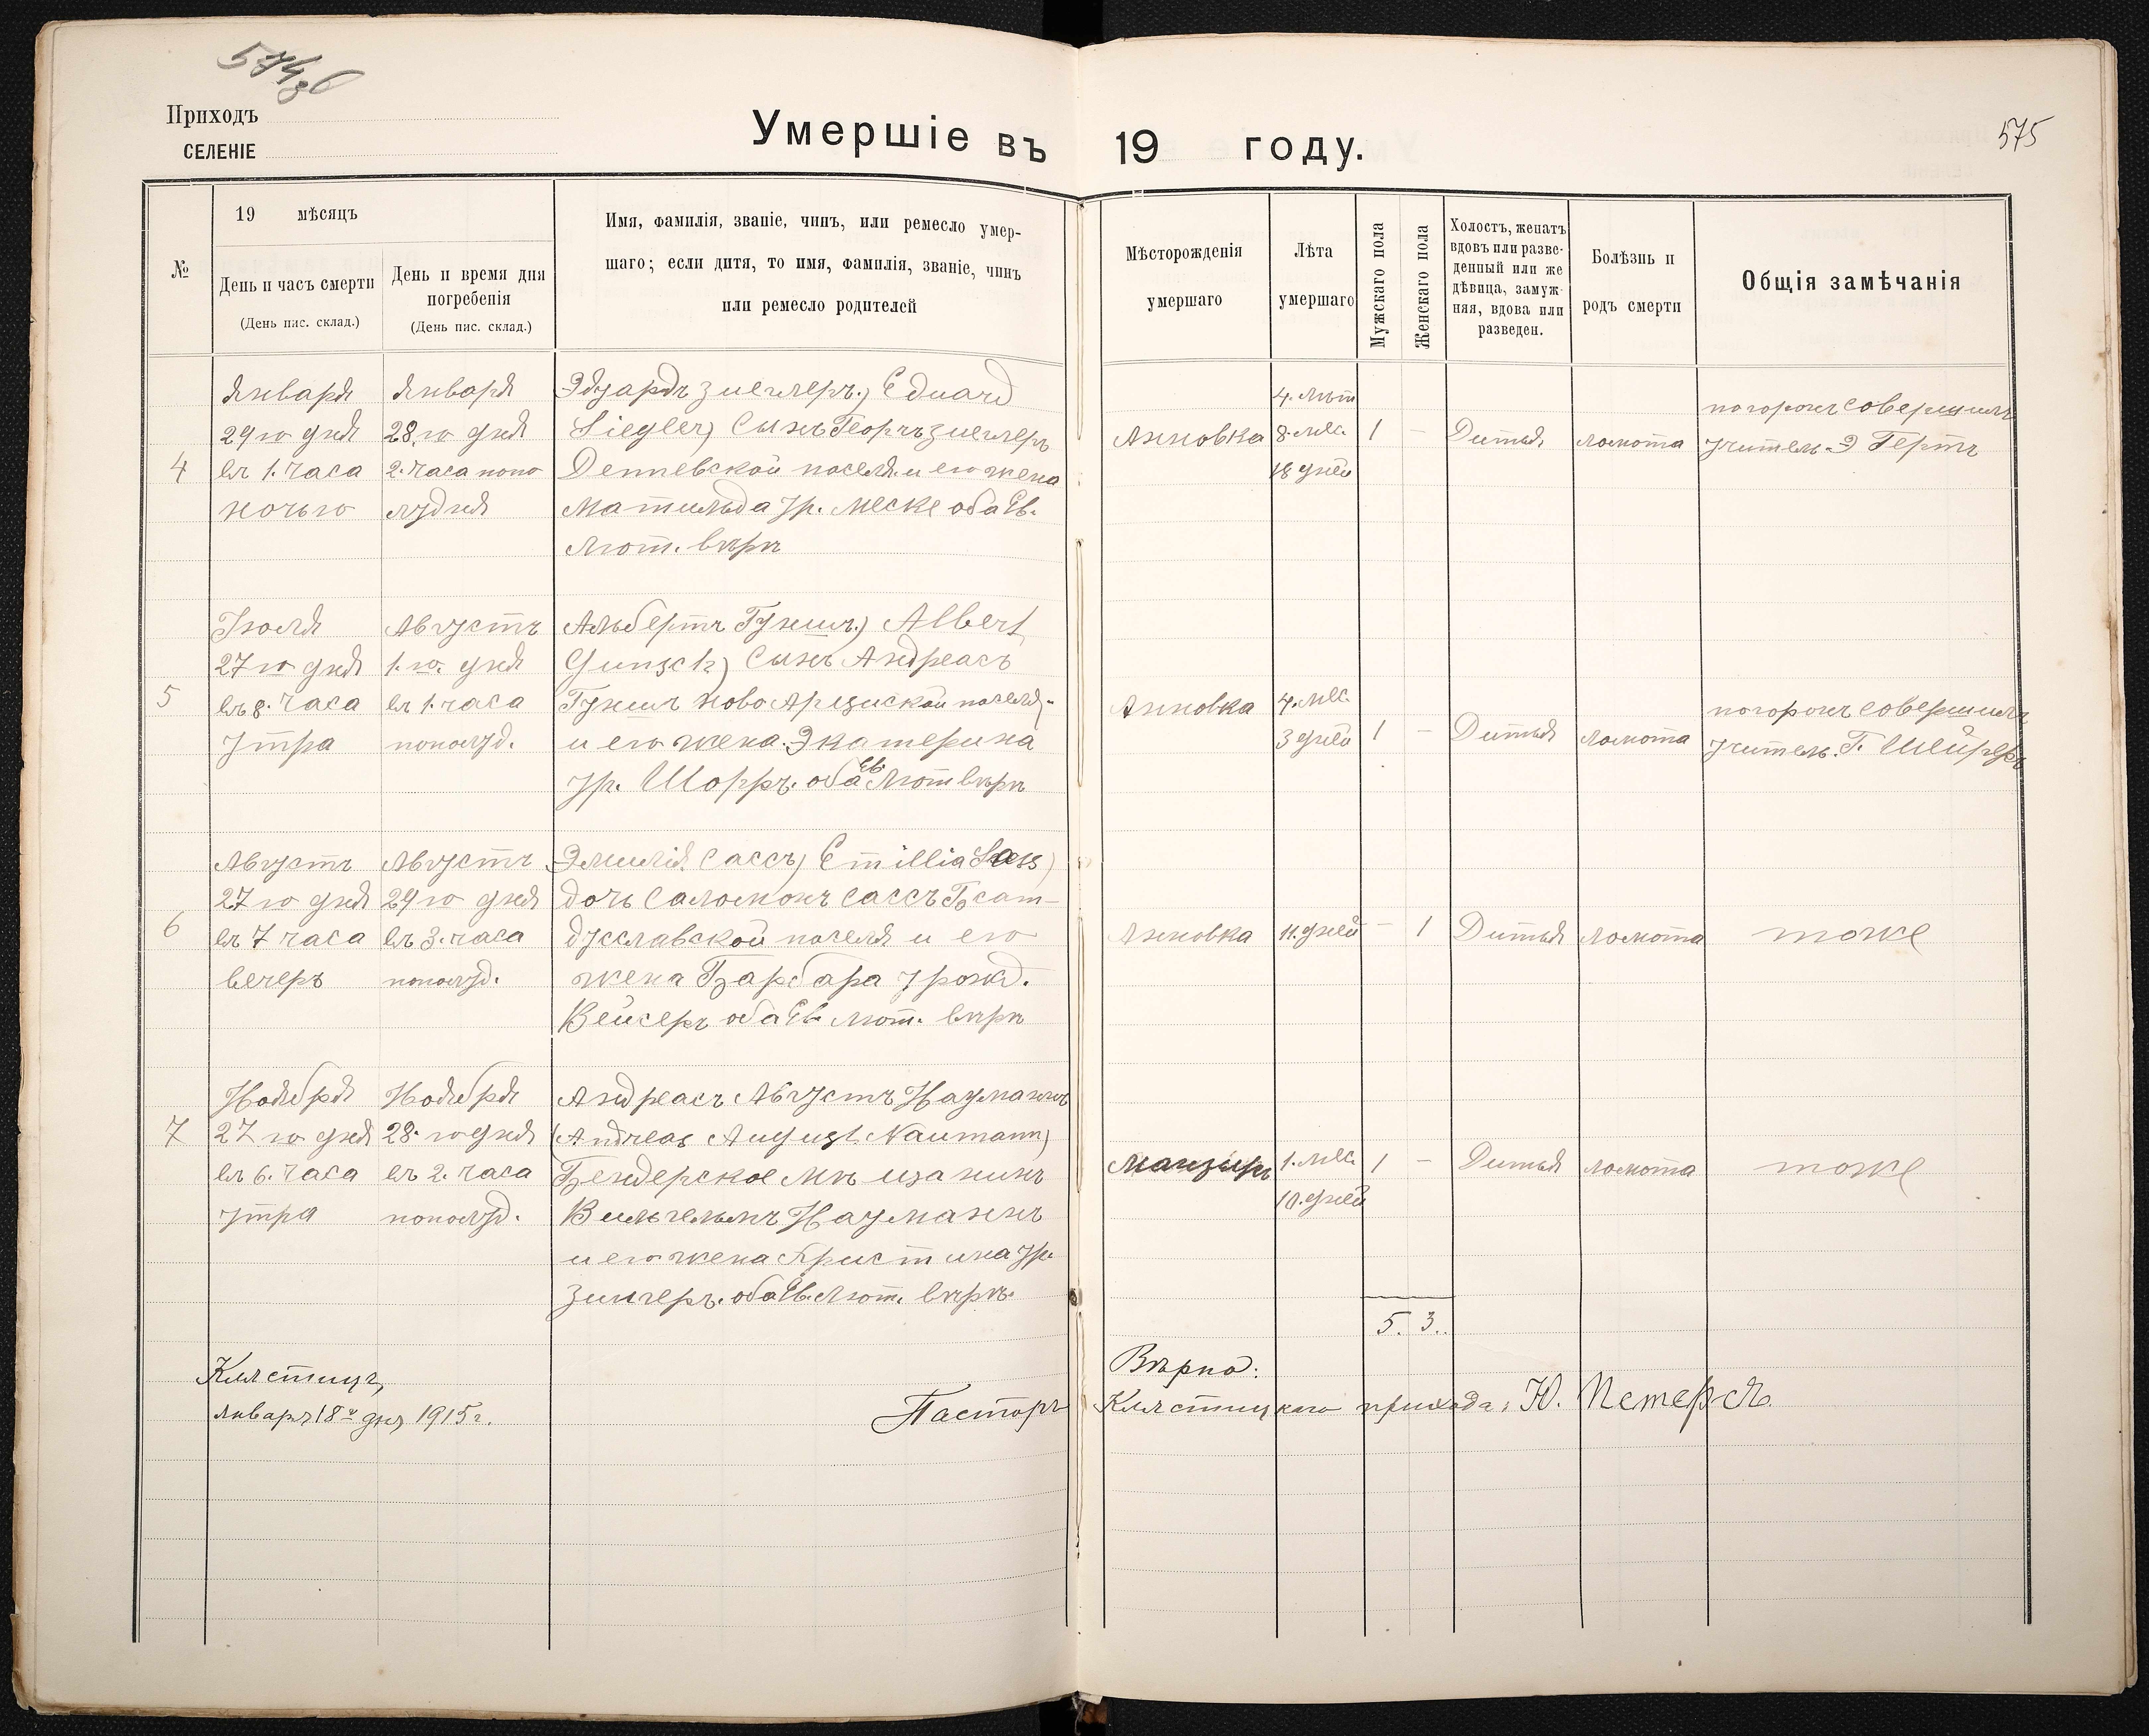 574 об
575
Приходъ
СЕЛЕНІЕ
Умершіе въ 19 году.
№
19 мѣсяцъ
День и часъ смерти
(День пис. склад.)
День и время дня
погребенія
(День пис. склад.)
Имя, фамилія, званіе, чинъ, или ремесло умер-
шаго; если дитя, то имя, фамилія, званіе, чинъ
или ремесло родителей
Мѣсторожденія
умершаго
Лѣта
умершаго
Мужскаго пола
Женскаго пола
Холостъ, женатъ
вдовъ или разве-
денный или же
дѣвица, замуж-
няя, вдова или
разведен.
Болѣзнь и
родъ смерти
Общія замѣчанія
4
Января
29го дня
въ 1. часа
ночью
Января
28.го дня
2. часа попо
лудня
Эдуардъ Зиеглеръ.) Eduard
Siegler) Сынъ Георгъ Зиеглеръ
Денневской поселя. и его жена
Матильда ур. Меске оба Ев.
Лют. вѣръ
Анновка
4. лѣт
8. мѣс.
18 дней
1
–
Дитья
ломота
похоронъ совершилъ
учитель. Э Гертъ
5
Іюля
27го дня
въ 8. часа
утра
Августъ
1.го. дня
въ 1. часа
пополуд.
Альбертъ Гуншъ.) Albert
Gunsch) Сынъ Андреасъ
Гуншъ Ново Арцизской поселя.
и его жена. Экатерина
ур. Шорръ. оба Ев. Лют вѣръ
Анновка
4. мѣс.
3 дней
1
–
Дитья
ломота
похоронъ совершилъ
учитель. Г. Шейреръ
6
Августъ
27го дня
въ 7 часа
вечеръ
Августъ
29го дня
въ 3. часа
пополуд.
Эмилія. Сассъ) Emillia Sass)
дочь Саломонъ Сассъ
жена Барбара урожд.
Вейсеръ оба Ев. Лют. вѣръ
Анновка
11. дней
–
1
Дитья
ломота
тоже
7
Ноября
27го дня
въ 6. часа
утра
Ноября
28. го дня
въ 2. часа
пополуд.
Андреасъ Августъ Науманнъ
(Andreas August Naumann)
Бендерское Мѣщанинъ
Вильгельмъ Науманнъ
и его жена Христина ур.
Зингеръ. оба Ев. Лют. вѣръ.
Манзыръ
1. мѣс.
10. дней
1
–
Дитья
ломота
тоже
5. 3.
Клястицъ,
Январъ 18го дня 1915г.
Вѣрно:
Пасторъ Клястицкаго прихода: Ю. Петерсъ